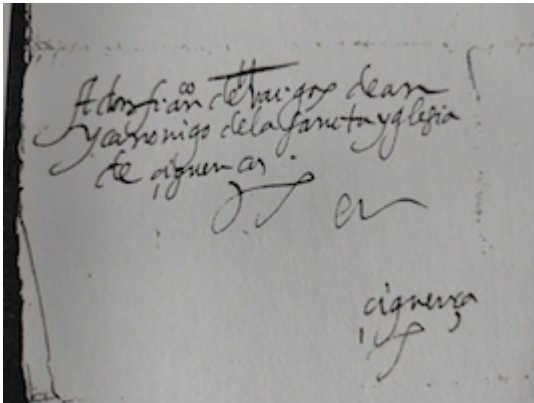 A don fr.co de vargas dean
y canonigo dela sancta yglesia
de çiguença.
en
çiguença